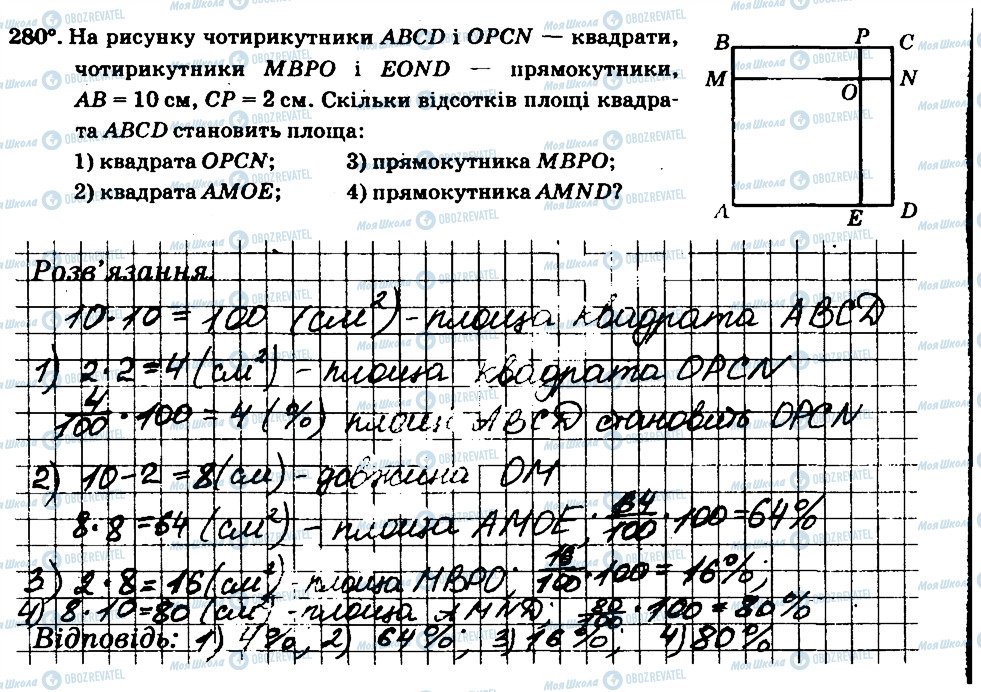 280°. На рисунку чотирикутники ABCD і OPCN — квадрати,
чотирикутники MBPO і EOND — прямокутники,
AB = 10 см, CP = 2 см. Скільки відсотків площі квадра-
та ABCD становить площа:
1) квадрата OPCN; 3) прямокутника MBPO;
2) квадрата AMOE; 4) прямокутника AMND?
B P C
M O N
A E D
Розв'язання.
10·10 = 100 (см²) - площа квадрата ABCD
1) 2·2 = 4 (см²) - площа квадрата OPCN
4/100 · 100 = 4 (%) площі ABCD становить OPCN
2) 10-2 = 8 (см) - довжина OM
8·8 = 64 (см²) - площа AMOE; 64/100 · 100 = 64%
3) 2·8 = 16 (см²) - площа MBPO; 16/100 · 100 = 16%;
4) 8·10 = 80 (см²) - площа AMND; 80/100 · 100 = 80%
Відповідь: 1) 4%, 2) 64%; 3) 16%; 4) 80%
МояШкола OBOZREVATEL